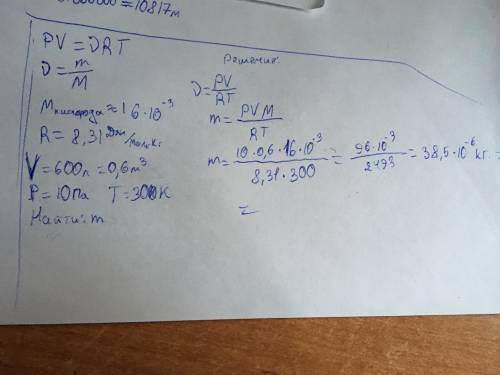 000000 = 10817м
PV = νRT
ν = m/M
Mкислорода ≈ 16·10⁻³
R = 8,31 Дж/моль·К
V = 600л = 0,6м³
P = 10Па T = 300К
Найти: m
Решение:
ν = PV/RT
m = PVM/RT
m = 10·0,6·16·10⁻³/8,31·300 = 96·10⁻³/2493 = 38,5·10⁻⁶ кг. =
=